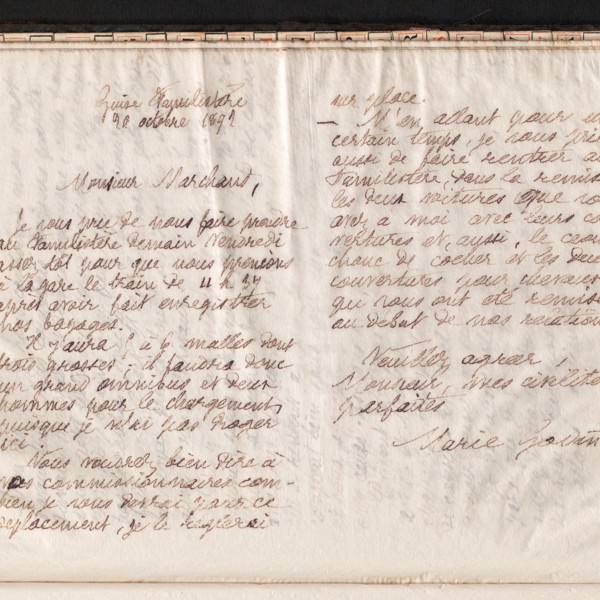 Guise Familistère
20 octobre 1892
Monsieur Marchand,
Je vous prie de nous faire prendre
au Familistère demain Vendredi
assez tôt pour que nous prenions
à la gare le train de 4 h 37
après avoir fait enregistrer
nos bagages.
Il y aura 5 à 6 malles dont
trois grosses ; il faudra donc
un grand omnibus et deux
hommes pour le chargement,
puisque je n'ai pas
ici.
Vous voudrez bien dire à
vos commissionnaires com-
bien je vous devrai pour ce
déplacement, je le règlerai
sur place.
— M'en allant pour un
certain temps, je vous prie
aussi de faire rentrer au
Familistère, dans la remise
les deux voitures que vo
avez à moi avec leurs co
vertures et, aussi, le caou
chouc de cocher et les deux
couvertures pour chevaux
qui vous ont été remises
au début de nos relations
Veuillez agréer,
Monsieur, mes civilités
parfaites
Marie Godin